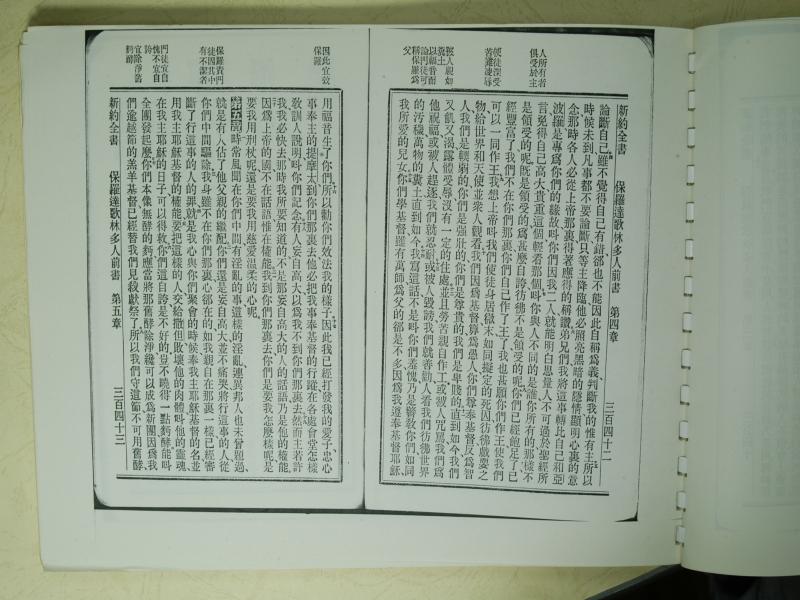 人所有者
俱受於主
使徒深受
苦難凌辱
輕人視如
糞土
以福音而
論門徒可
稱保羅爲
父
新約全書 保羅達歌林多人前書 第四章 三百四十二
論斷自己雖不覺得自己有錯卻也不能因此自稱爲義判斷我的惟有主所以
時候未到凡事都不要論斷只等主降臨他必照亮黑暗的隱情顯明心裏的意
念那時各人必從上帝那裏得著應得的稱讚弟兄們我將這事轉比自己和亞
波羅是專爲你們的緣故叫你們因我二人就能明白思量人不可過於聖經所
言免得自己高大貴重這個輕看那個叫你與人不同的是誰你所有的那樣不
是領受的呢既是領受的爲甚麼自誇彷彿不是領受的呢你們已經飽足了已
經豐富了我們不在你們那裏你們自己作了王了我也甚願你們作王使我們
可以一同作王我想上帝叫我們使徒身居微末如同擬定的死囚彷彿戲耍之
物給世界和天使並衆人觀看我們因爲基督算爲愚人你們尊奉基督反爲智
人我們是輕弱的你們是强壯的你們是尊貴的我們是卑賤的直到如今我們
又飢又渴露體受辱沒有一定的住處並且勞苦親自作工或被人咒罵我們爲
他祝福或被人趕逐我們就忍耐或被人毀謗我們就善勸人看我們彷彿世界
的汚穢萬物的糞土直到如今我寫這話不是叫你們羞愧乃是警教你們如同
我所愛的兒女你們學基督雖有萬師爲父的卻是不多因爲我遵奉基督耶穌
因此宜效
保羅
保羅責門
徒因其中
有不潔者
門徒宜自
愧不宜自
誇
宜除淨舊
酵
用福音生了你們所以勸你們效法我的樣子因此我已經打發我的愛子忠心
事奉主的提摩太到你們那裏去他必把我事奉基督的行蹤在各處會堂怎樣
敎訓人說明叫你們記念有人妄自高大以爲我不到你們那裏去然而主若許
我我必快去那時我所要知道的不是那妄自高大的人的話語乃是他的權能
因爲上帝的國不在話語惟在權能我到你們那裏去你們是要我怎麼樣呢是
要我用刑杖呢還是要我用慈愛溫柔的心呢
第五章時常風聞在你們中間有淫亂的事這樣的淫亂連異邦人也未曾題過
就是有人佔了他父親的繼配你們還是妄自高大並不痛哭將行這事的人從
你們中間驅除我身雖不在你們那裏心卻在的如我親自在那裏一樣已經審
斷了行這事的人的罪就是我心與你們聚會的時候奉我主耶穌基督的名並
用我主耶穌基督的權能要把這樣的人交給撒但敗壞他的肉體叫他的靈魂
在我主耶穌的日子可以得救你們這自誇是不好的豈不曉得一點麪酵能叫
全團發起麼你們本像無酵的麪應當將那舊酵除淨纔可以成爲新團因爲我
們逾越節的羔羊基督已經替我們見殺獻祭了所以我們守這節不可用舊酵
新約全書 保羅達歌林多人前書 第五章 三百四十三